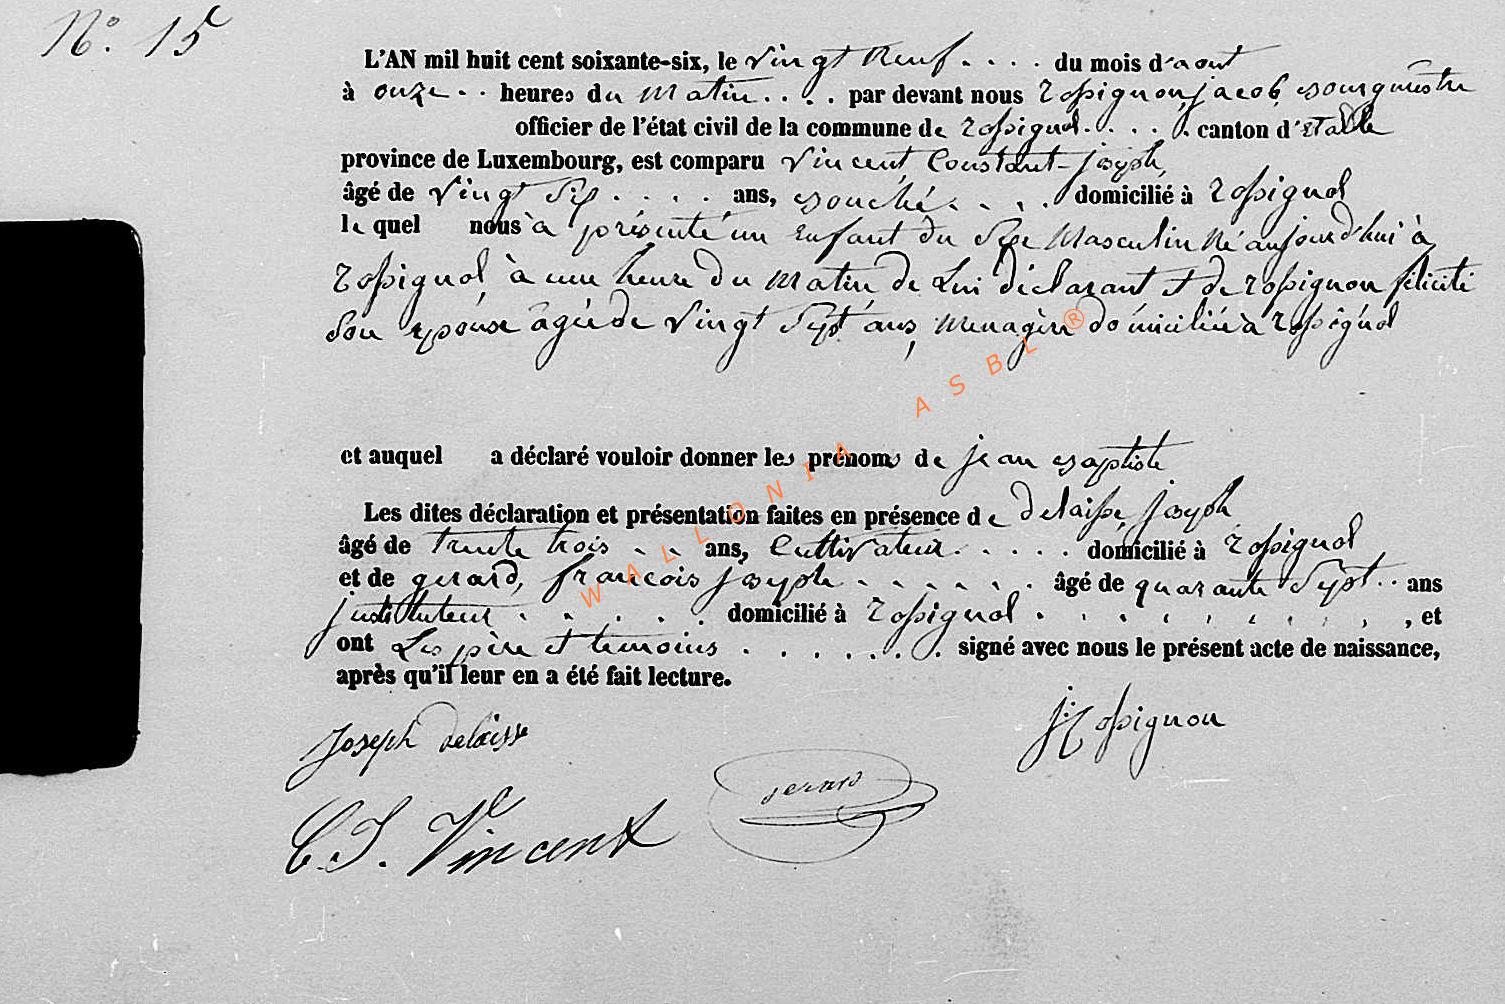 N° 15
L'AN mil huit cent soixante-six, le vingt neuf .... du mois d'aout
à onze .. heures du matin .... par devant nous rossignon, jacob, bourgmestre
officier de l'état civil de la commune de rossignol ..... canton d'Etalle
province de Luxembourg, est comparu vincent, Constant-joseph,
âgé de vingt six ..... ans, bouché .... domicilié à rossignol
le quel nous à présenté un Enfant du Sexe Masculin Né aujourd'hui à
rossignol, à une heure du Matin, de Lui déclarant et de rossignon félicité
Son épouse âgée de vingt Sept ans, Menagère domiciliée à rossignol
et auquel a déclaré vouloir donner les prénoms de jean baptiste
Les dites déclaration et présentation faites en présence de delaisse, joseph
âgé de trente trois .. ans, Cultivateur ..... domicilié à rossignol
et de gerard, francois joseph ....... âgé de quarante Sept .. ans
instituteur ...... domicilié à rossignol ........., et
ont Les père et temoins ....... signé avec nous le présent acte de naissance,
après qu'il leur en a été fait lecture.
Joseph delaisse
j: rossignon
gerard
C. J. Vincent
WALLONIA ASBL ®